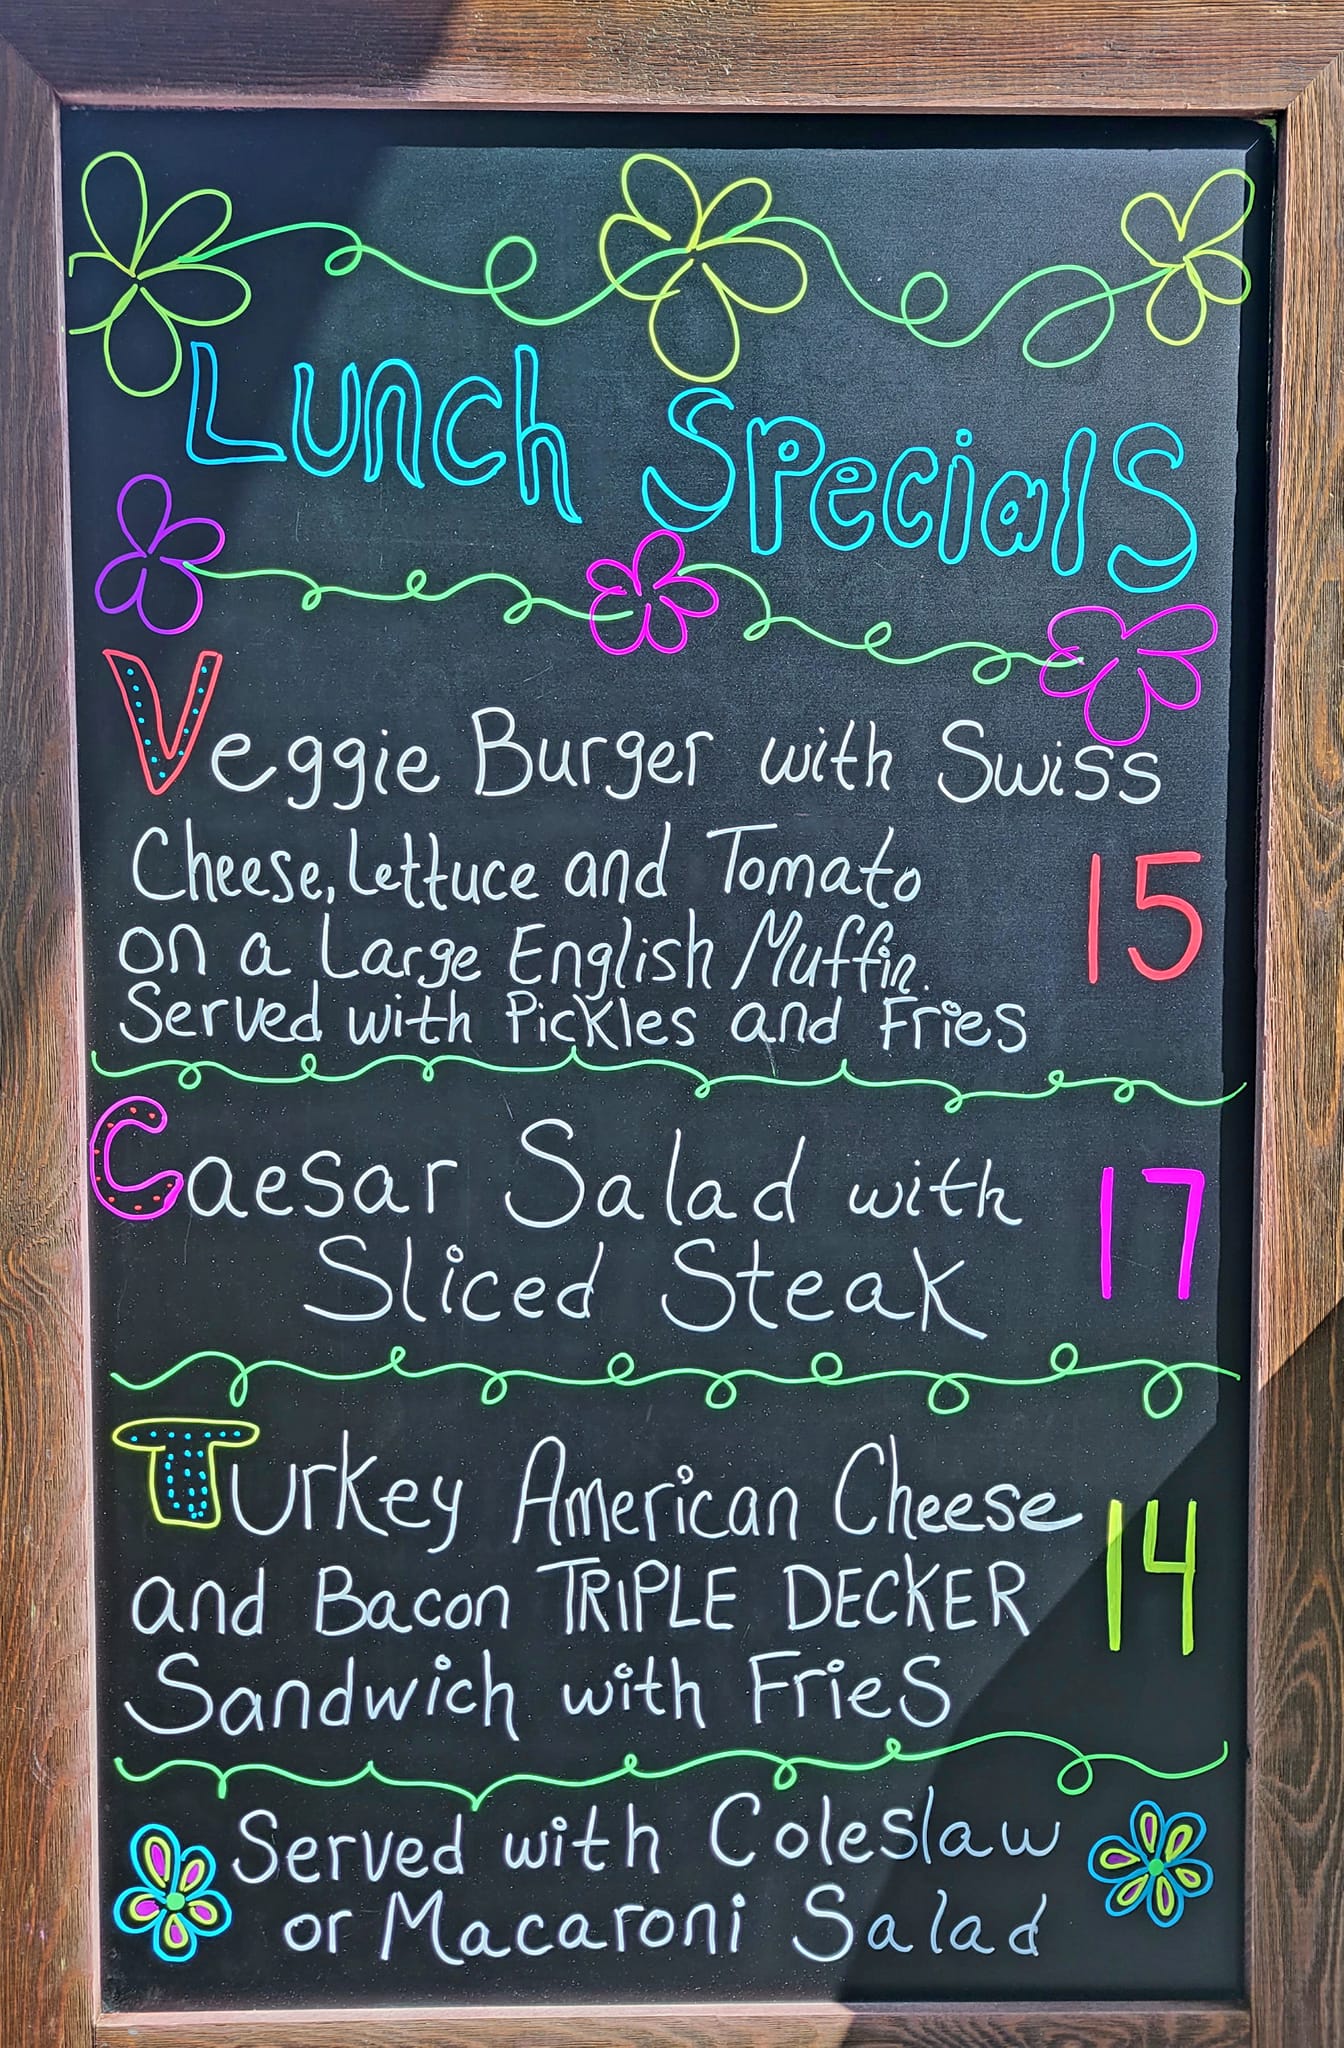 Lunch Specials
Veggie Burger with Swiss
Cheese, Lettuce and Tomato
on a Large English Muffin.
Served with Pickles and Fries
15
Caesar Salad with
Sliced Steak
17
Turkey American Cheese
and Bacon TRIPLE DECKER
Sandwich with Fries
14
Served with Coleslaw
or Macaroni Salad